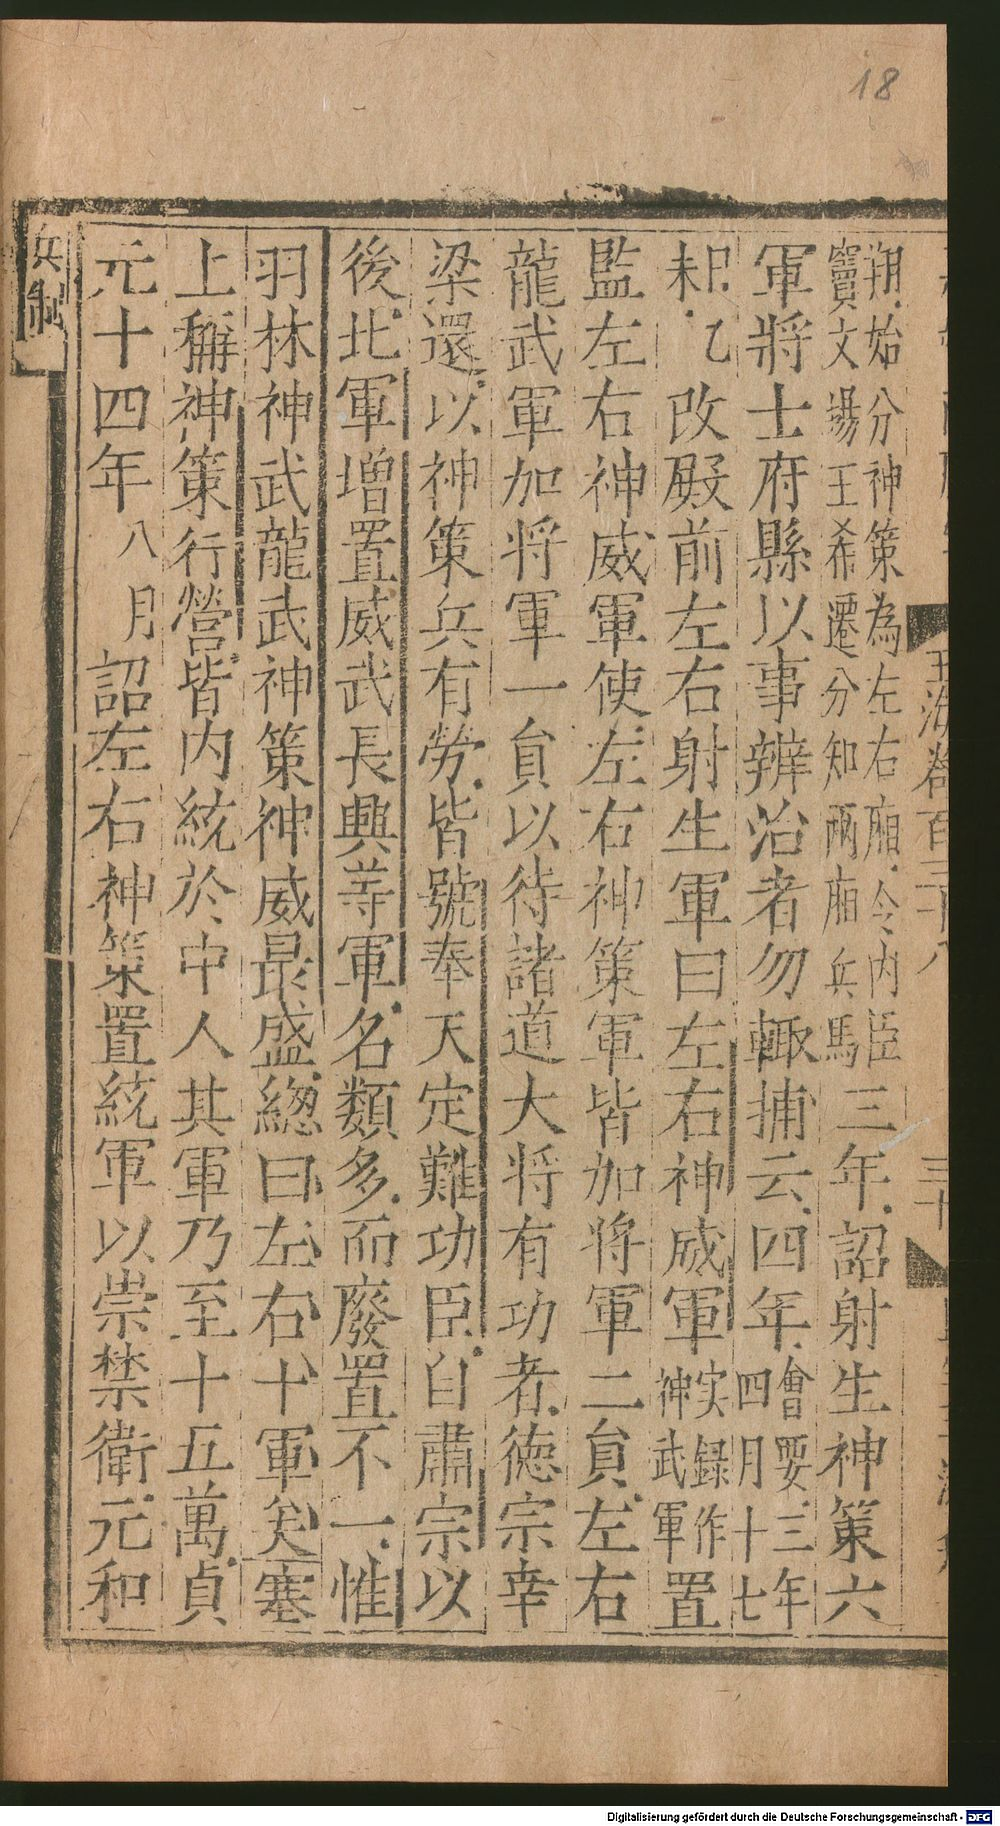 18
朔始分神策為左右廂令内臣
竇文場王希遷分知兩廂兵馬
三年詔射生神策六
軍將士府縣以事辨治者勿輙捕云四年
會要三年
四月十七
乙
未改殿前左右射生軍曰左右神威軍
実録作
神武軍
置
監左右神威軍使左右神策軍皆加将軍二貟左右
龍武軍加将軍一貟以待諸道大将有功者德宗幸
梁還以神策兵有勞皆號奉天定難功臣自肅宗以
後北軍增置威武長興等軍名類多而廢置不一惟
羽林神武龍武神策神威最盛緫曰左右十軍矣塞
上稱神策行營皆内統於中人其軍乃至十五萬貞
元十四年八月詔左右神策置統軍以崇禁衛元和
兵制
玉海卷百三十八
三十
Digitalisierung gefördert durch die Deutsche Forschungsgemeinschaft - DFG